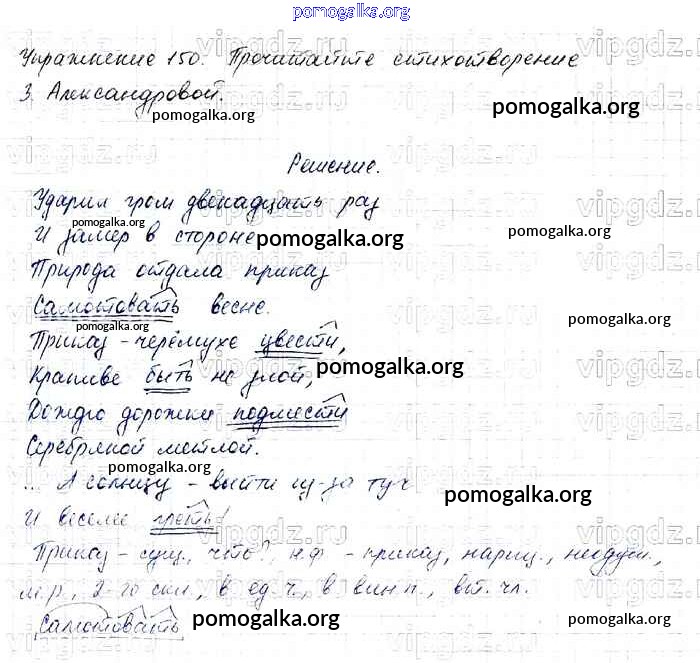 pomogalka.org
Упражнение 150. Прочитайте стихотворение
З. Александровой.
pomogalka.org
pomogalka.org
Решение.
Ударил гром двенадцать раз
pomogalka.org
И замер в стороне
pomogalka.org
pomogalka.org
Природа отдала приказ
Самотовать весне.
pomogalka.org
pomogalka.org
Приказ - черёмухе цвести,
pomogalka.org
Крапиве быть не злой,
Дождю дорожки подмести
Серебряной метлой.
pomogalka.org
... А солнцу - выйти из-за туч
pomogalka.org
И веселее греть!
Приказ - сущ., что?, н.ф - приказ, нариц., неодуш.,
м.р., 2-го скл., в ед.ч., в вин.п., вт. чл.
Самотовать
pomogalka.org
pomogalka.org
vipgdz.ru